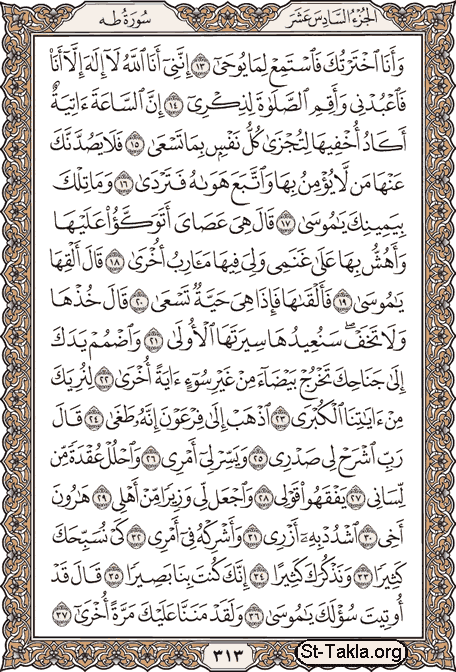 الجزء السادس عشر
سورة طه
وَأَنَا ٱخْتَرْتُكَ فَٱسْتَمِعْ لِمَا يُوحَىٰٓ ١٣ إِنَّنِىٓ أَنَا ٱللَّهُ لَآ إِلَٰهَ إِلَّآ أَنَا۠
فَٱعْبُدْنِى وَأَقِمِ ٱلصَّلَوٰةَ لِذِكْرِىٓ ١٤ إِنَّ ٱلسَّاعَةَ ءَاتِيَةٌ
أَكَادُ أُخْفِيهَا لِتُجْزَىٰ كُلُّ نَفْسٍۭ بِمَا تَسْعَىٰ ١٥ فَلَا يَصُدَّنَّكَ
عَنْهَا مَن لَّا يُؤْمِنُ بِهَا وَٱتَّبَعَ هَوَىٰهُ فَتَرْدَىٰ ١٦ وَمَا تِلْكَ
بِيَمِينِكَ يَٰمُوسَىٰ ١٧ قَالَ هِىَ عَصَاىَ أَتَوَكَّؤُا۟ عَلَيْهَا
وَأَهُشُّ بِهَا عَلَىٰ غَنَمِى وَلِىَ فِيهَا مَـَٔارِبُ أُخْرَىٰ ١٨ قَالَ أَلْقِهَا
يَٰمُوسَىٰ ١٩ فَأَلْقَىٰهَا فَإِذَا هِىَ حَيَّةٌ تَسْعَىٰ ٢٠ قَالَ خُذْهَا
وَلَا تَخَفْ ۖ سَنُعِيدُهَا سِيرَتَهَا ٱلْأُولَىٰ ٢١ وَٱضْمُمْ يَدَكَ
إِلَىٰ جَنَاحِكَ تَخْرُجْ بَيْضَآءَ مِنْ غَيْرِ سُوٓءٍ ءَايَةً أُخْرَىٰ ٢٢ لِنُرِيَكَ
مِنْ ءَايَٰتِنَا ٱلْكُبْرَى ٢٣ ٱذْهَبْ إِلَىٰ فِرْعَوْنَ إِنَّهُۥ طَغَىٰ ٢٤ قَالَ
رَبِّ ٱشْرَحْ لِى صَدْرِى ٢٥ وَيَسِّرْ لِىٓ أَمْرِى ٢٦ وَٱحْلُلْ عُقْدَةً مِّن
لِّسَانِى ٢٧ يَفْقَهُوا۟ قَوْلِى ٢٨ وَٱجْعَل لِّى وَزِيرًا مِّنْ أَهْلِى ٢٩ هَٰرُونَ
أَخِى ٣٠ ٱشْدُدْ بِهِۦٓ أَزْرِى ٣١ وَأَشْرِكْهُ فِىٓ أَمْرِى ٣٢ كَىْ نُسَبِّحَكَ
كَثِيرًا ٣٣ وَنَذْكُرَكَ كَثِيرًا ٣٤ إِنَّكَ كُنتَ بِنَا بَصِيرًا ٣٥ قَالَ قَدْ
أُوتِيتَ سُؤْلَكَ يَٰمُوسَىٰ ٣٦ وَلَقَدْ مَنَنَّا عَلَيْكَ مَرَّةً أُخْرَىٰٓ ٣٧
٣١٣
St-Takla.org